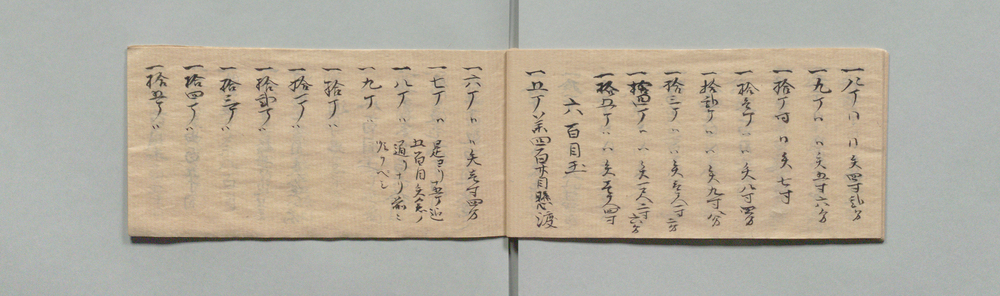 一八丁〃〃矢四寸弐分
一九丁〃〃矢五寸六分
一拾丁〃〃矢七寸
一拾壱丁〃〃矢八寸四分
一拾弐丁〃〃矢九寸八分
一拾三丁〃〃矢壱尺一寸二分
一拾四丁〃〃矢一尺二寸六分
一拾五丁〃〃矢壱尺四寸
六百目玉
一五丁〃薬四百廿目懸渡
一六丁〃〃矢壱寸四分
一七丁〃 是ヨリ十五丁迄
一八丁〃 五百目矢倉ノ
一九丁〃 通リナリ前ニ
一拾丁〃
一拾一丁〃
一拾弐丁〃
一拾三丁〃
一拾四丁〃
一拾五丁〃